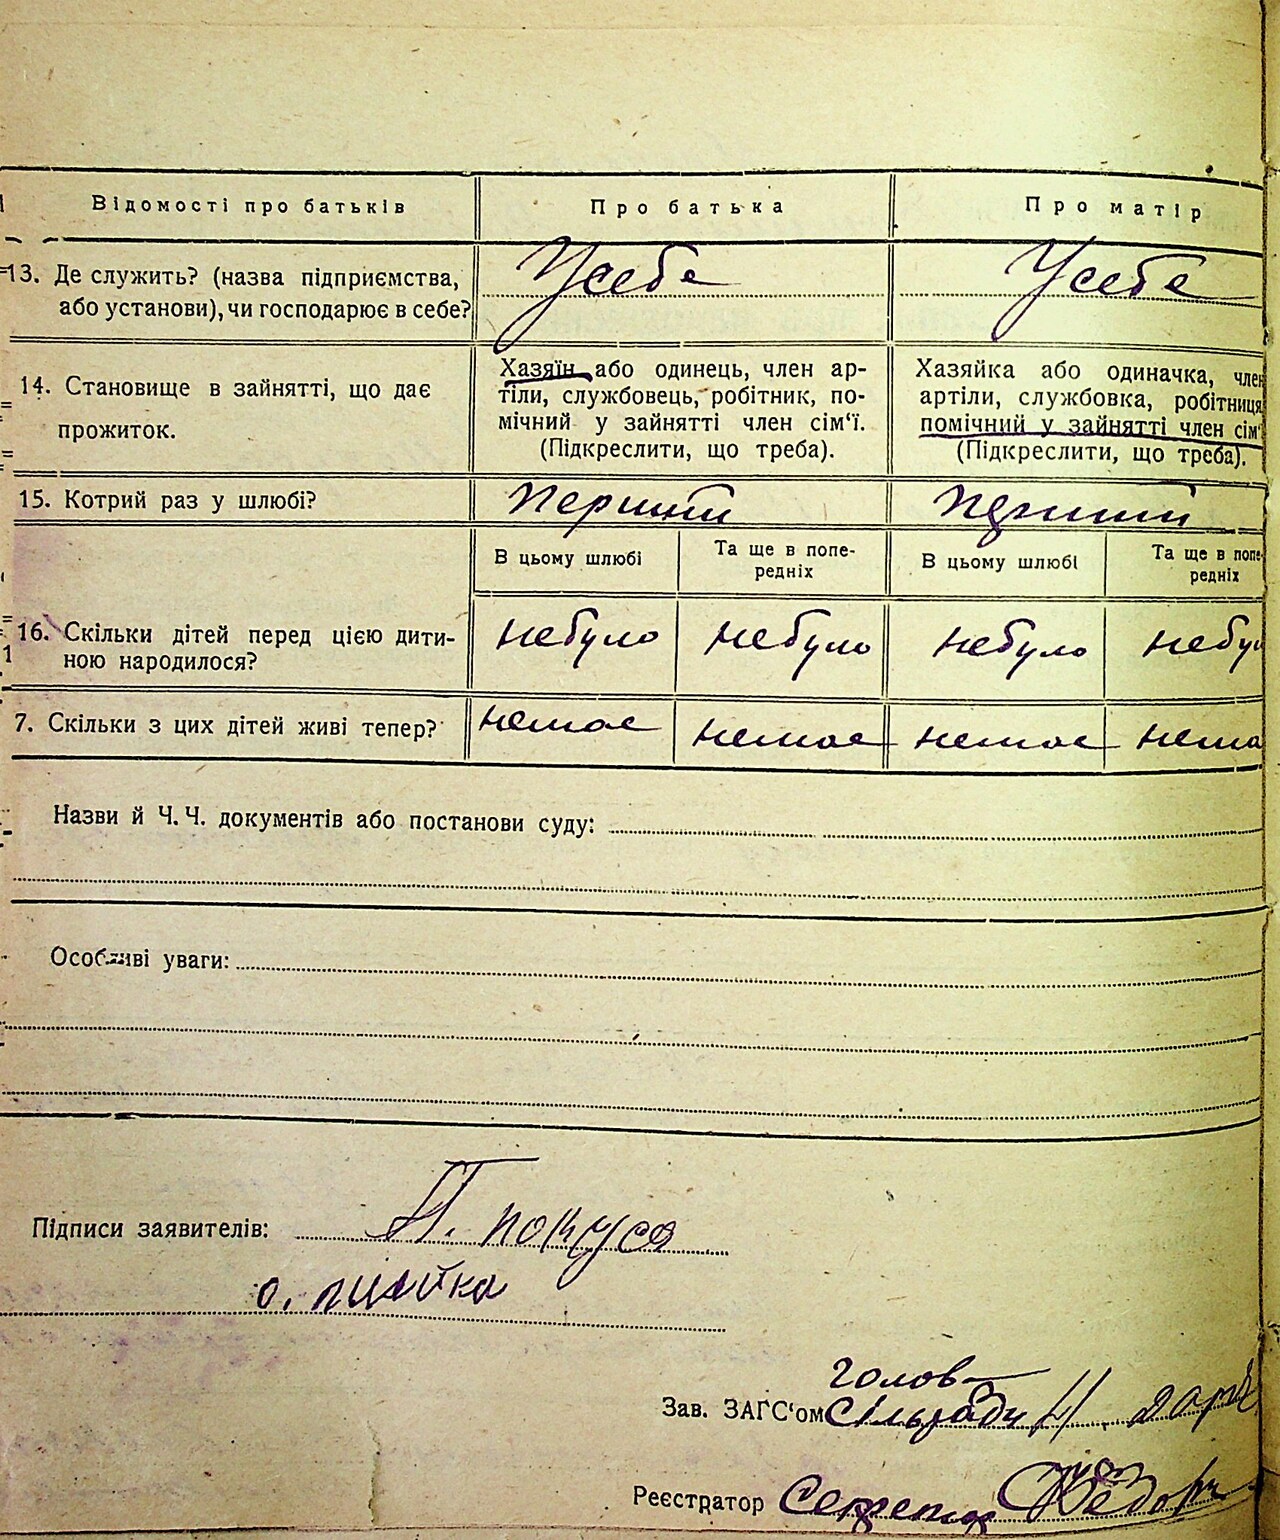 Відомості про батьків Про батька Про матір
13. Де служить? (назва підприємства, або установи), чи господарює в себе?
Усебе Усебе
14. Становище в зайнятті, що дає прожиток.
Хазяїн або одинець, член ар-
тіли, службовець, робітник, по-
мічний у зайнятті член сім‘ї.
(Підкреслити, що треба).
Хазяйка або одиначка, член
артіли, службовка, робітниця
помічний у зайнятті член сім‘
(Підкреслити, що треба).
15. Котрий раз у шлюбі? Перший Перший
В цьому шлюбі Та ще в попе-
редніх В цьому шлюбі Та ще в попе
редніх
16. Скільки дітей перед цією дити-
ною народилося?
небуло небуло небуло небу
7. Скільки з цих дітей живі тепер? немає немає немає нема
Назви й Ч. Ч. документів або постанови суду:
Особливі уваги:
Підписи заявителів: П.
О.
голова
Зав. ЗАГС‘ом Сільради
Реєстратор Секретар